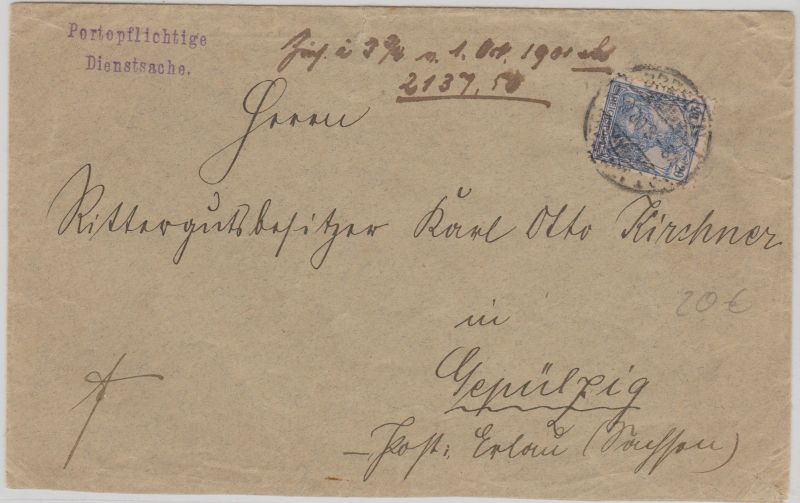 Portopflichtige
Dienstsache.
Zins. à 3 3/4 v. 1. Okt. 1901
2137,50
Herrn
Rittergutsbesitzer Karl Otto Kirchner
in
Gepülzig
Post: Erlau (Sachsen)
20 €
20